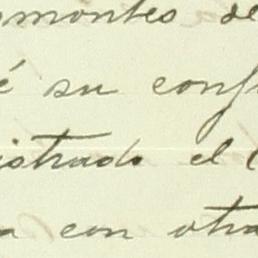 montes de
é su conf
istrado el
a con otra